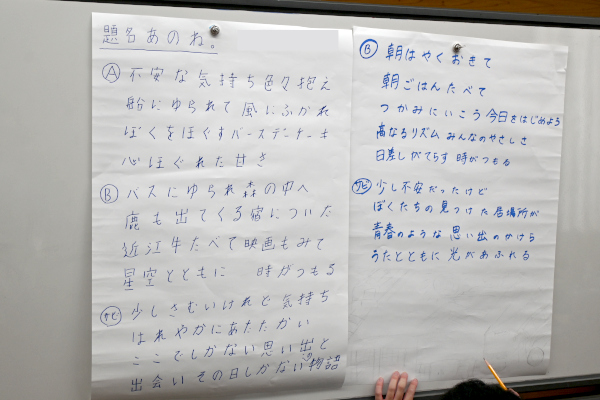 題名あのね。
Ⓐ 不安な気持ち色々抱え
船にゆられて 風にふかれ
ぼくをほぐすバースデーケーキ
心ほぐれた甘さ
Ⓑ バスにゆられ森の中へ
鹿も出てくる宿についた
近江牛たべて映画もみて
星空とともに 時がつもる
サビ 少しさむいけれど 気持ち
はれやかにあたたかい
ここでしかない思い出と
出会い その日しかない物語
Ⓑ 朝はやくおきて
朝ごはんたべて
つかみにいこう今日をはじめよう
高なるリズム みんなのやさしさ
日差しがてらす 時がつもる
サビ 少し不安だったけど
ぼくたちの見つけた居場所が
青春のような 思い出のかけら
うたとともに 光があふれる